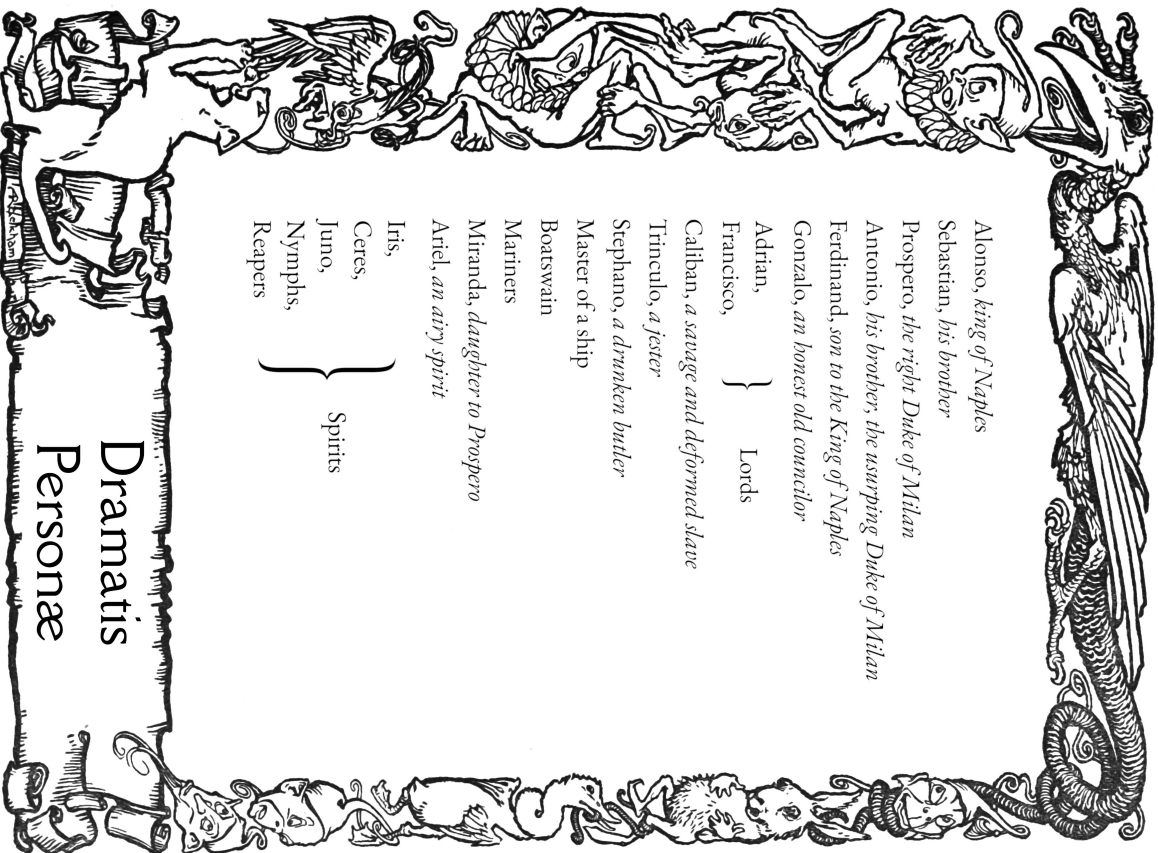 Alonso, king of Naples
Sebastian, his brother
Prospero, the right Duke of Milan
Antonio, his brother, the usurping Duke of Milan
Ferdinand, son to the King of Naples
Gonzalo, an honest old councilor
Adrian,
Francisco,
} Lords
Caliban, a savage and deformed slave
Trinculo, a jester
Stephano, a drunken butler
Master of a ship
Boatswain
Mariners
Miranda, daughter to Prospero
Ariel, an airy spirit
Iris,
Ceres,
Juno,
Nymphs,
Reapers
} Spirits
Dramatis
Personæ